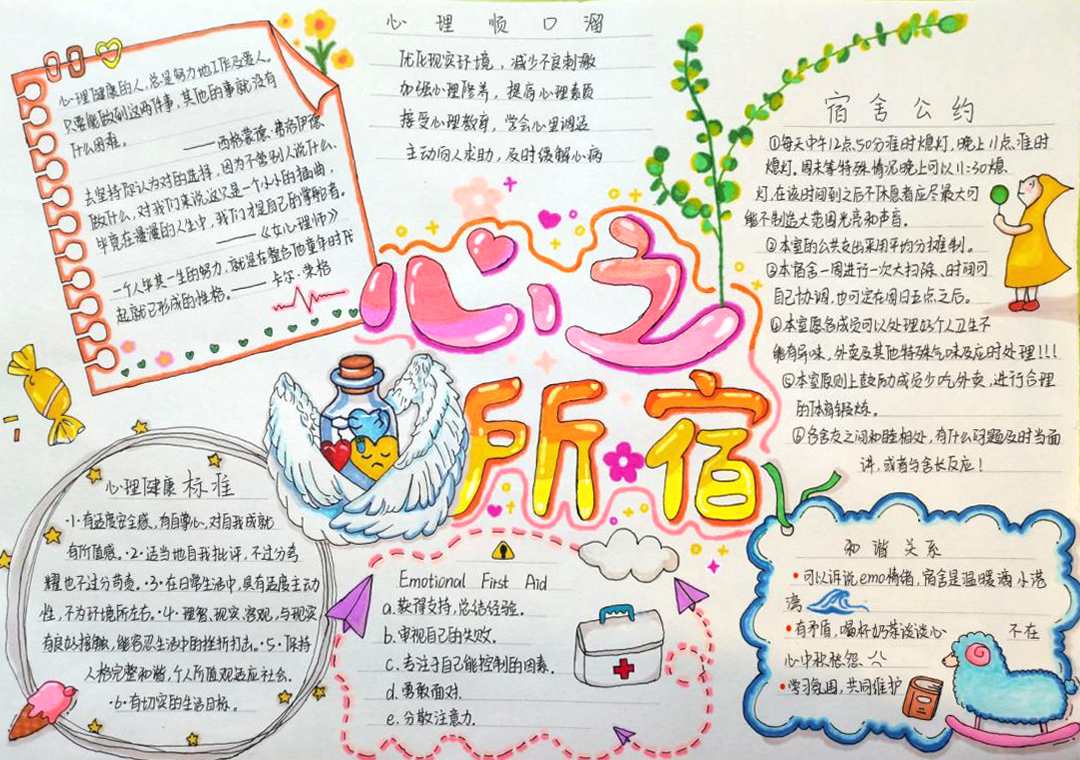 心理健康的人,总是努力地工作及爱人。
只要能做到这两件事,其他的事就没有
什么困难。 ——西格蒙德·弗洛伊德
去坚持你认为对的选择,因为不管别人说什么、
做什么,对我们来说,这只是一个小小的插曲,
毕竟在漫漫的人生中,我们才是自己的掌舵者。
——《女心理师》
一个人毕其一生的努力,就是在整合他童年时代
起就已形成的性格。——卡尔·荣格
心理顺口溜
优化现实环境,减少不良刺激
加强心理修养,提高心理素质
接受心理教育,学会心里调适
主动向人求助,及时缓解心病
宿舍公约
①每天中午12点50分准时熄灯,晚上11点准时
熄灯。周末等特殊情况晚上可以11:30熄
灯,在该时间到之后不休息者应尽最大可
能不制造大范围光亮和声音。
②本室的公共支出采用平均分摊制。
③本宿舍一周进行一次大扫除、时间可
自己协调,也可定在周日五点之后。
④本室愿各成员可以处理好个人卫生不
能有异味,外卖及其他特殊气味及应时处理!!!
⑤本室原则上鼓励成员少吃外卖,进行合理
的体育锻炼。
⑥各舍友之间和睦相处,有什么问题及时当面
讲,或者与舍长反应!
心之
所宿
心理健康标准
·1·有适度安全感、有自尊心,对自我成就
有所值感。·2·适当地自我批评,不过分夸
耀也不过分苛责。·3·在日常生活中,具有适度主动
性,不为环境所左右。·4·理智、现实、客观,与现实
有良好接触,能容忍生活中的挫折打击。·5·保持
人格完整和谐,个人所值观适应社会。
·6·有切实的生活目标。
Emotional First Aid
a.获得支持,总结经验.
b.审视自己的失败.
c.专注于自己能控制的因素.
d.勇敢面对.
e.分散注意力.
和谐关系
•可以诉说emo情绪,宿舍是温暖滴小港
湾
•有矛盾,喝杯奶茶谈谈心 不在
心中积怨怨.
•学习氛围,共同维护